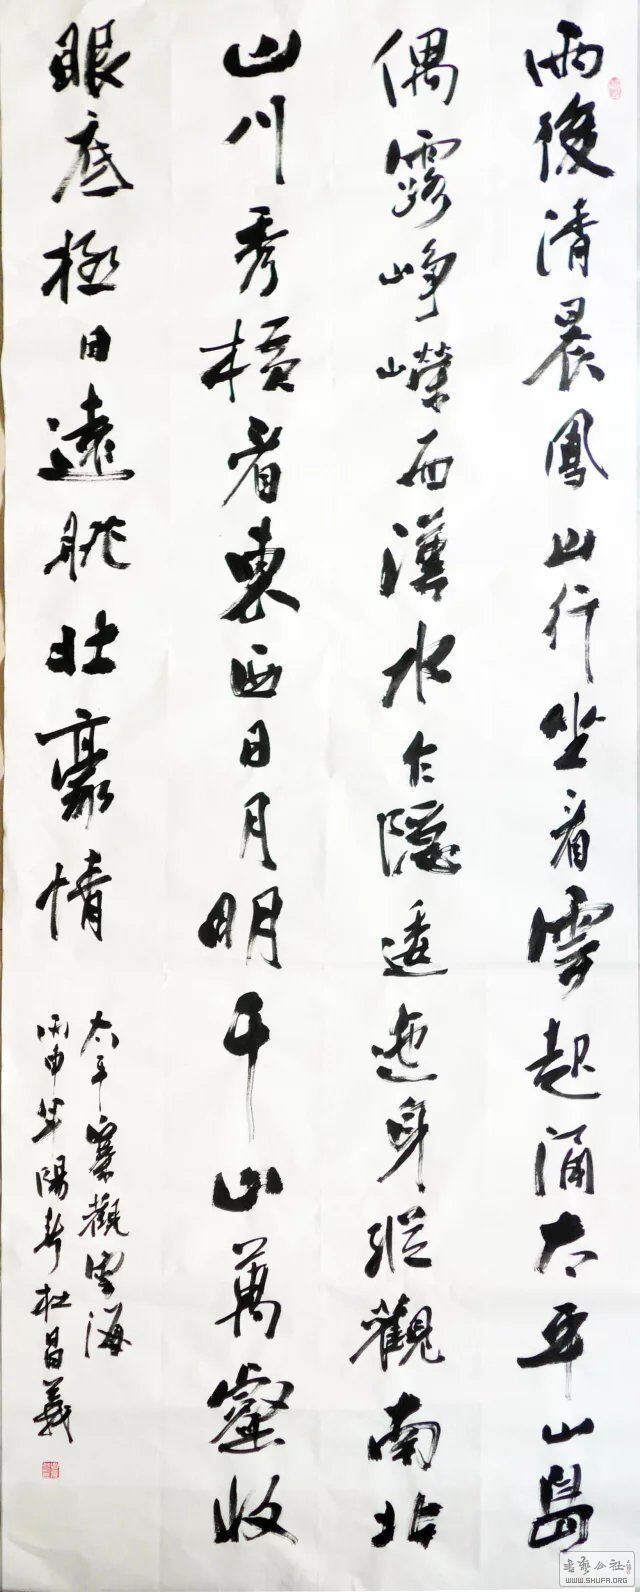 雨後清晨鳳山行坐看雲起涌太平山島
偶露崢嶸面漢水乍隱逶迤身縱觀南北
山川秀橫看東西日月明千山萬壑收
眼底極目遠眺壯豪情
太平寨觀雲海
丙申年陽春杜昌義
公社
WWW.SHUFA.ORG